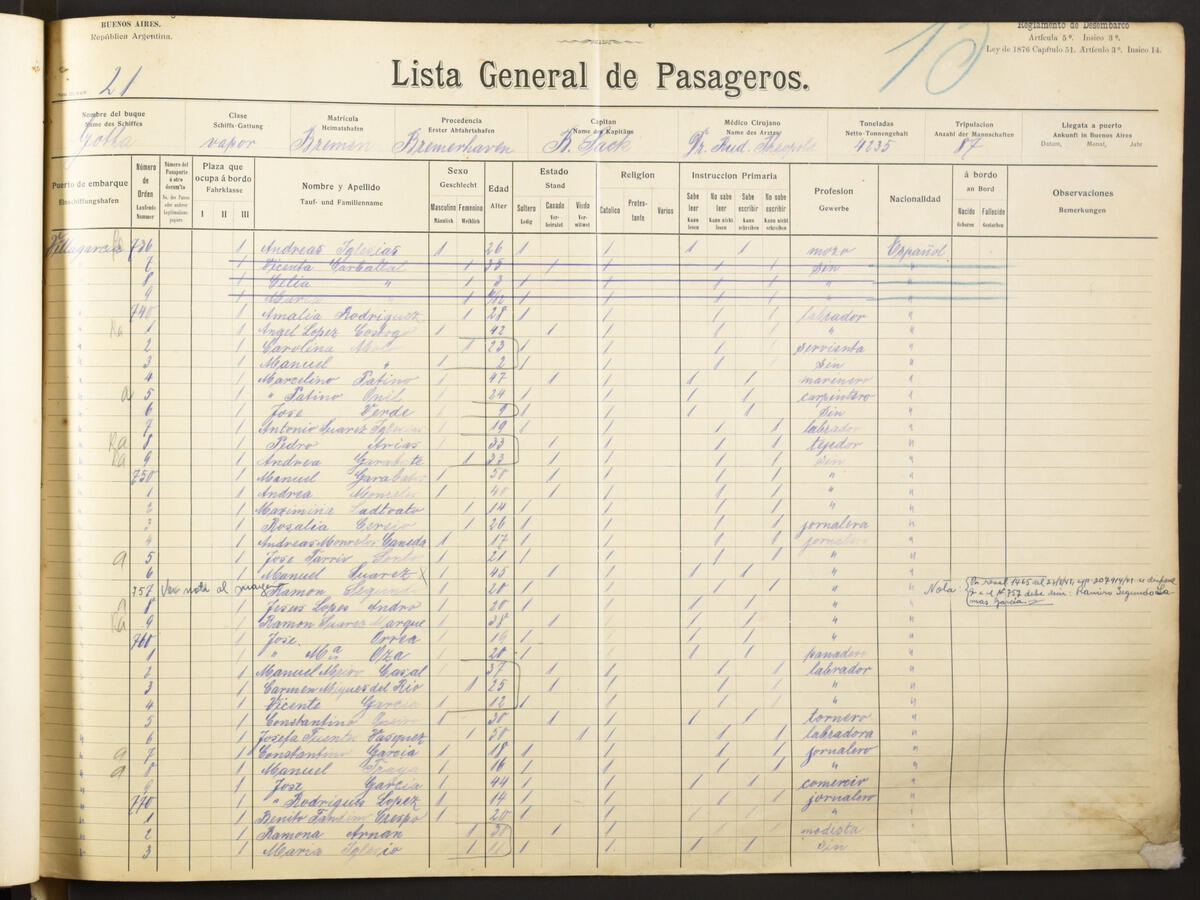 BUENOS AIRES.
República Argentina.
Reglamento de Desembarco
Artícula 5º. Insico 3º.
Ley de 1876 Capítulo 51. Artículo 3º. Insico 14.
15
21
Lista General de Pasageros.
Nombre del buque Name des Schiffes Gotha
Clase Schiffs-Gattung vapor
Matrícula Heimatshafen Bremen
Procedencia Erster Abfahrtshafen Bremerhaven
Capitan Name des Kapitäns R. Jack
Médico Cirujano Name des Arztes Dr. Rud.
Toneladas Netto-Tonnengehalt 4235
Tripulacion Anzahl der Mannschaften 87
Llegata a puerto Ankunft in Buenos Aires Datum, Monat, Jahr
Puerto de embarque Einschiffungshafen
Número de Orden Laufende Nummer
Número del Passaporte
Plaza que ocupa á bordo Fahrklasse I II III
Nombre y Apellido Tauf- und Familienname
Sexo Geschlecht Masculino Männlich Feminino Weiblich
Edad Alter
Estado Stand Soltero Ledig Casado Verheiratet Viudo Verwitwet
Religion Catolico Protestante Varios
Instruccion Primaria Sabe leer Kann lesen No sabe leer Kann nicht lesen Sabe escribir Kann schreiben No sabe escribir Kann nicht schreiben
Profesion Gewerbe
Nacionalidad
á bordo an Bord Nacido Geboren Fallecido Gestorben
Observaciones Bemerkungen
Villagarcia 736 1 Andreas Iglesias 1 26 1 1 1 1 mozo Español
7 1 Vicenta Carballal 1 35 1 1 1 1 Sin "
8 1 Celia " 1 3 1 1 1 1 " "
9 1 Maria " 1 1 1 1 1 " "
740 1 Amalia Rodriguez 1 28 1 1 1 1 labrador "
1 1 Angel Lopez 1 42 1 1 1 1 " "
2 1 Carolina 1 23 1 1 1 1 servienta "
3 1 Manuel " 1 2 1 1 1 1 Sin "
4 1 Marcelino Patino 1 47 1 1 1 1 marenero "
a 5 1 " Patino 1 24 1 1 1 1 carpintero "
6 1 Jose Verde 1 9 1 1 1 1 Sin "
7 1 Antonio Suarez Iglesias 1 19 1 1 1 1 labrador "
8 1 Pedro Arias 1 33 1 1 1 1 tejedor "
9 1 Andrea Garabate 1 33 1 1 1 1 Sin "
750 1 Manuel 1 50 1 1 1 1 " "
1 1 Andrea 1 40 1 1 1 1 " "
2 1 Maximina 1 14 1 1 1 1 " "
3 1 Rosalia 1 26 1 1 1 1 jornalera "
4 1 Andreas 1 17 1 1 1 1 jornalero "
a 5 1 Jose 1 21 1 1 1 1 " "
6 1 Manuel Suarez X 1 45 1 1 1 1 " "
757 Ver nota al margen Ramon Segundo 1 20 1 1 1 1 " "
Nota: En resol. 1465 757 debe decir: Ramiro Segundo Lamas Garcia.
8 1 Jesus Lopes Andro 1 20 1 1 1 1 " "
9 1 Ramon Suarez Marque 1 38 1 1 1 1 " "
760 1 Jose Orrea 1 19 1 1 1 1 " "
1 1 " Mª Oza 1 20 1 1 1 1 panadero "
2 1 Manuel Casal 1 37 1 1 1 1 labrador "
3 1 Carmen Miques del Rio 1 25 1 1 1 1 " "
4 1 Vicente Garcia 1 12 1 1 1 1 " "
5 1 Constantino 1 30 1 1 1 1 tornero "
6 1 Josefa Fuente Vasquez 1 50 1 1 1 1 labradora "
a 7 1 Constantino Garcia 1 18 1 1 1 1 jornalero "
a 8 1 Manuel 1 16 1 1 1 1 " "
9 1 Jose Garcia 1 44 1 1 1 1 comercio "
770 1 " Rodrigues Lopez 1 14 1 1 1 1 jornalero "
1 1 Benito Crespo 1 20 1 1 1 1 " "
2 1 Ramona Arnan 1 1 1 1 1 modista "
3 1 Maria Iglesio 1 1 1 1 1 Sin "